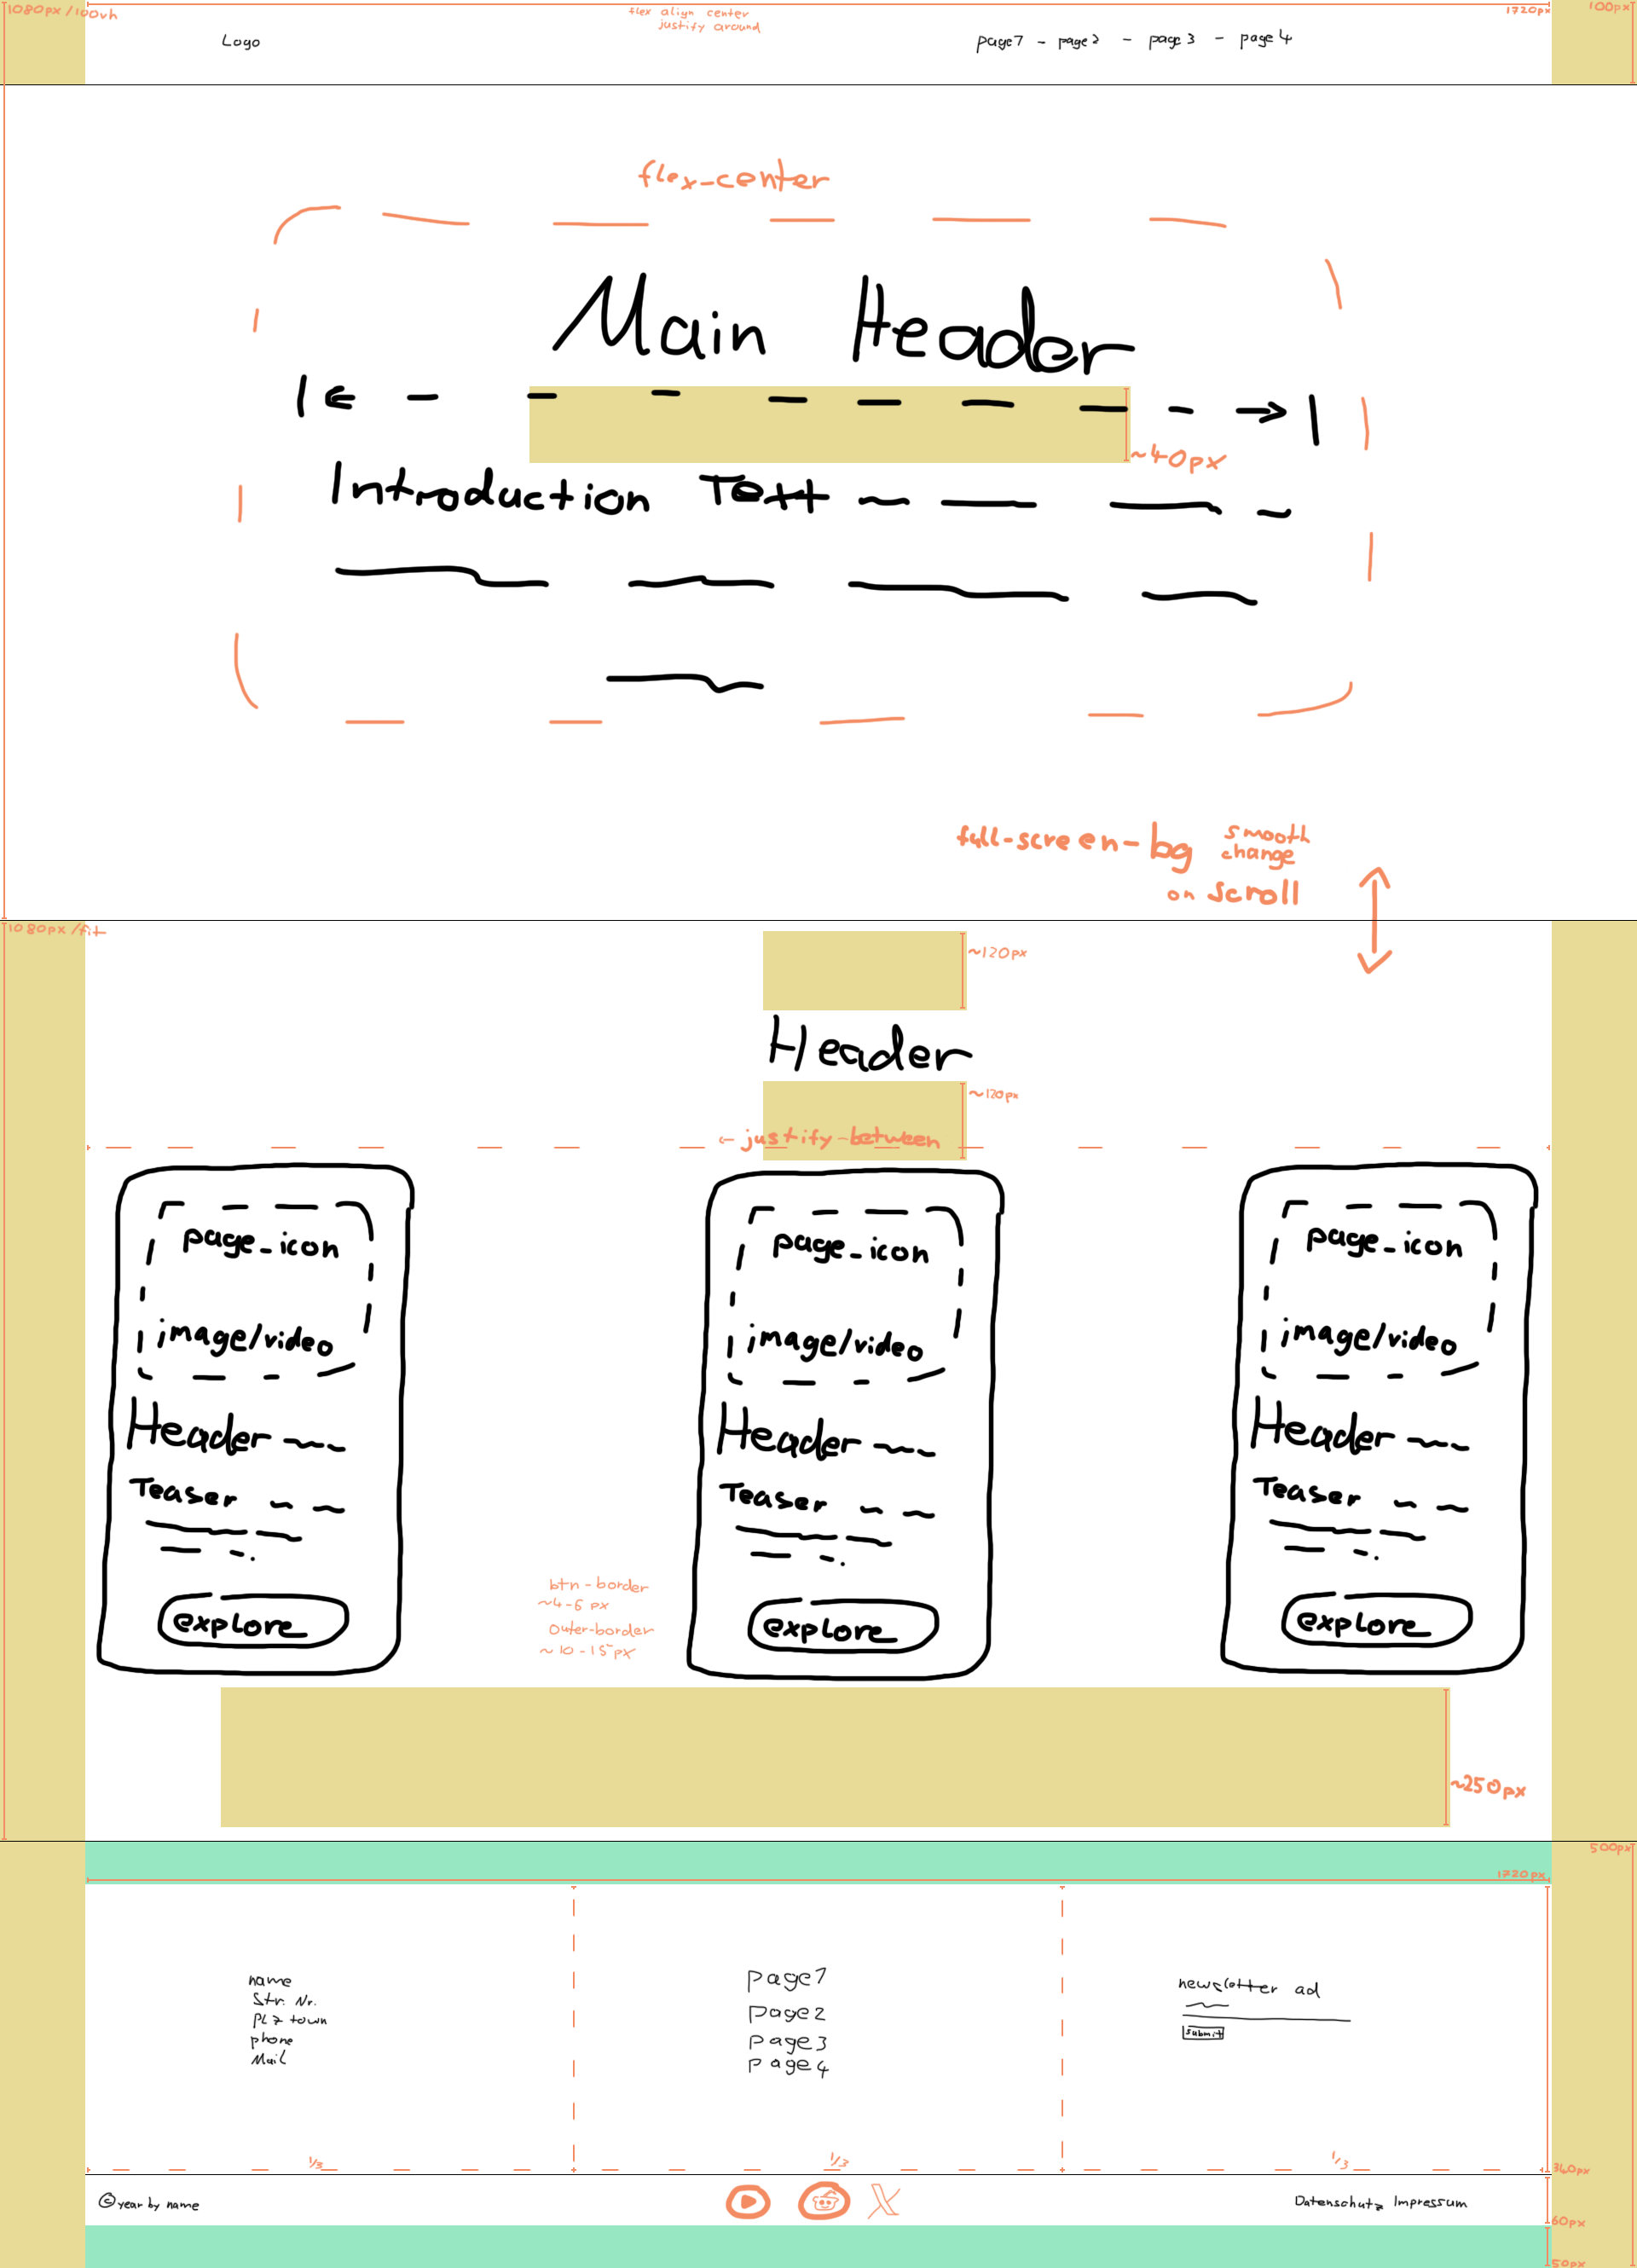 1080px/100vh
flex align center
justify around
1720px
100px
Logo
page1 - page2 - page3 - page4
flex-center
Main Header
~40px
Introduction Text
full-screen-bg smooth
change
on scroll
1080px/fit
~120px
Header
~120px
← justify-between
page_icon
image/video
Header
Teaser
explore
page_icon
image/video
Header
Teaser
explore
page_icon
image/video
Header
Teaser
explore
btn-border
~4-6 px
outer-border
~10-15px
~250px
500px
1720px
name
Str. Nr.
PLZ town
phone
Mail
page1
page2
page3
page4
newsletter ad
submit
1/3
1/3
1/3
340px
© year by name
Datenschutz Impressum
60px
50px